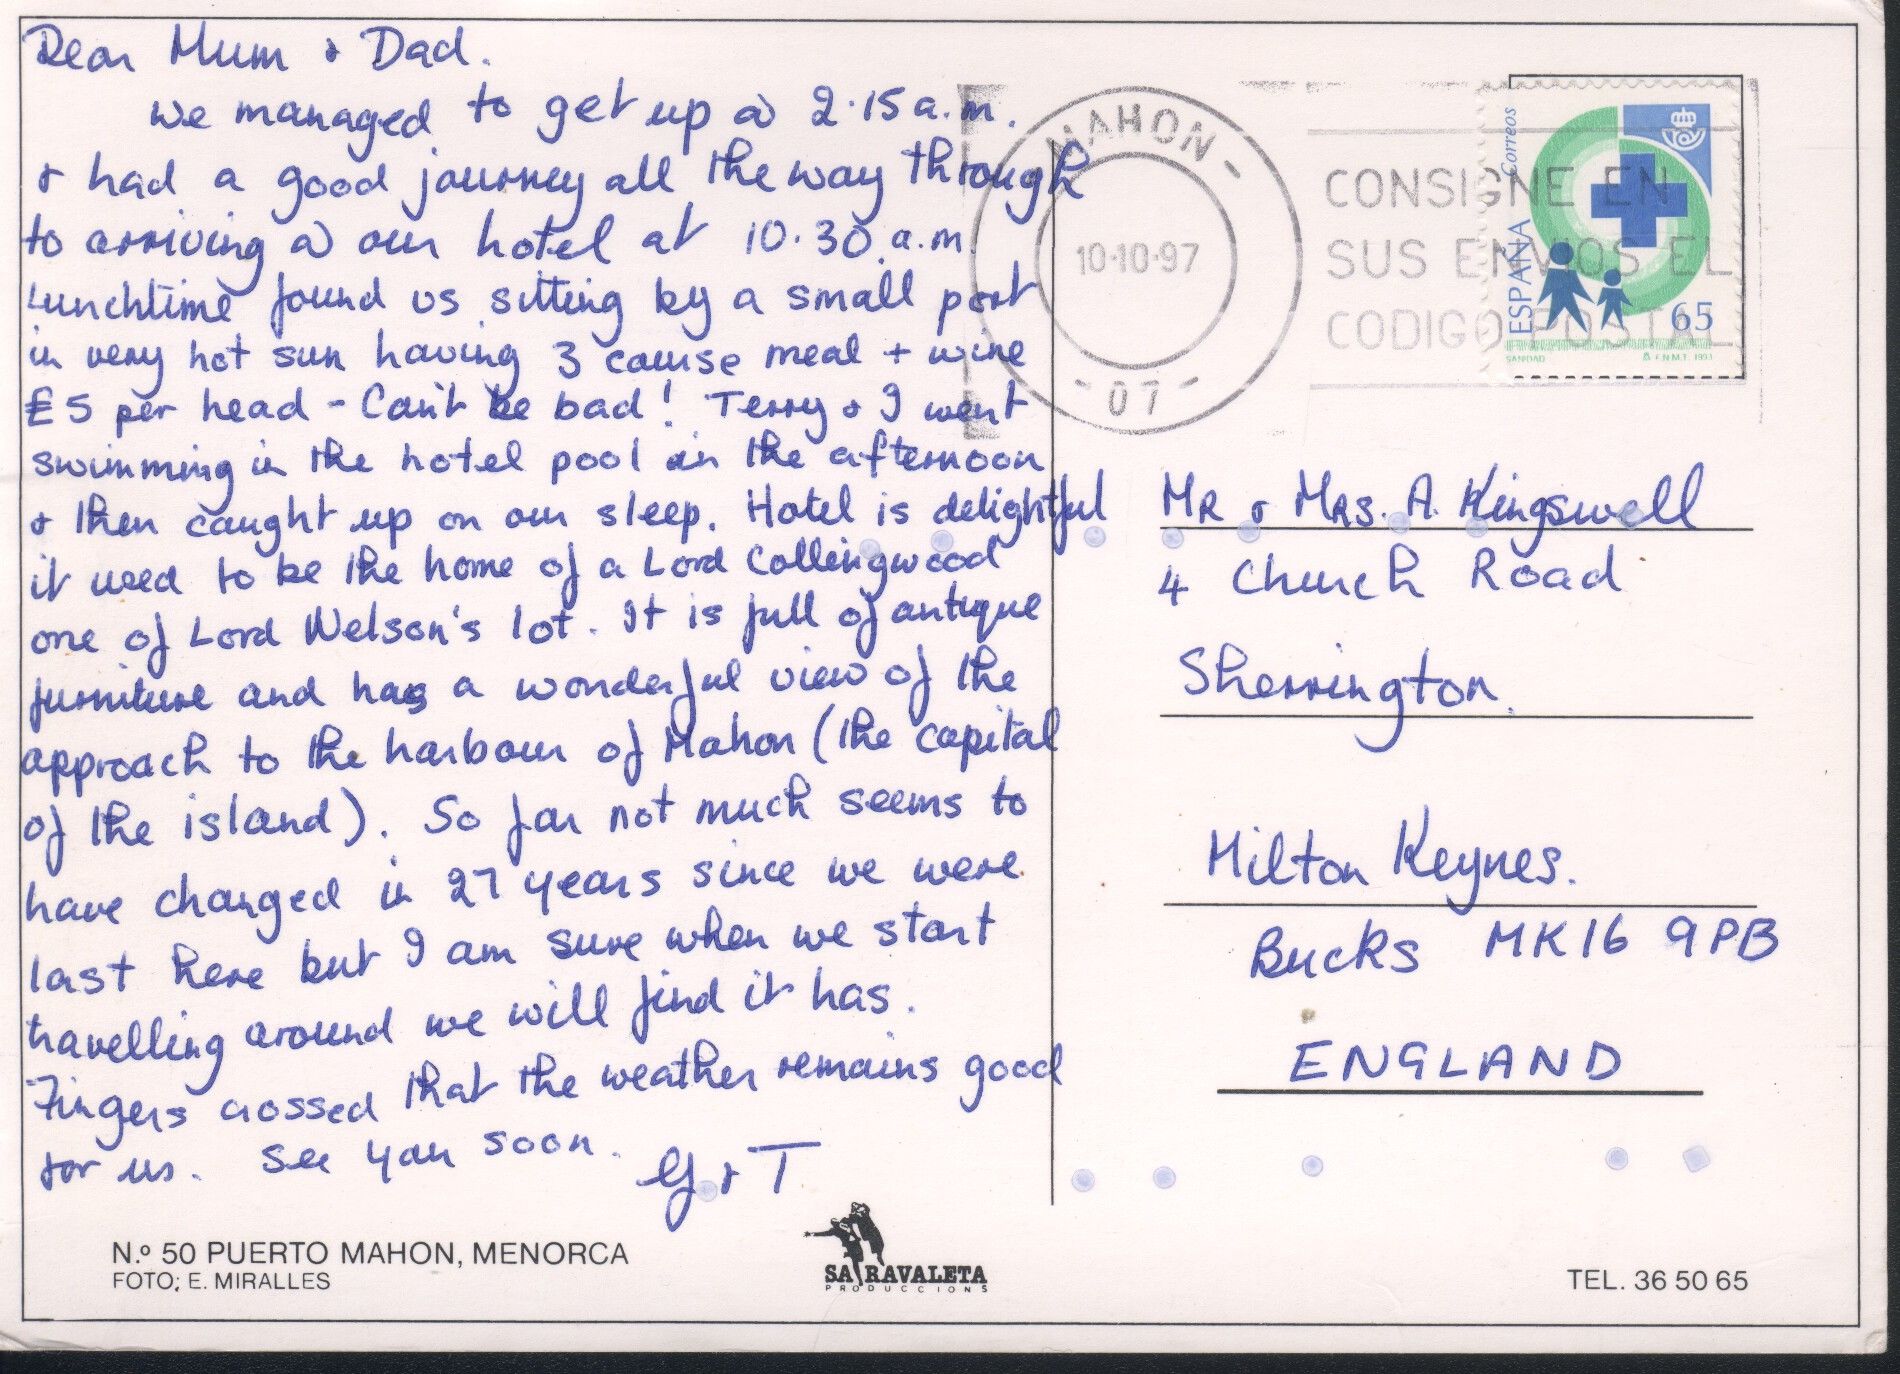 Dear Mum & Dad.
We managed to get up @ 2.15 a.m.
& had a good journey all the way through
to arriving @ our hotel at 10.30 a.m.
Lunchtime found us sitting by a small port
in very hot sun having 3 course meal + wine
£5 per head - Can't be bad! Terry & I went
swimming in the hotel pool in the afternoon
& then caught up on our sleep. Hotel is delightful
it used to be the home of a Lord Collingwood
one of Lord Nelson's lot. It is full of antique
furniture and has a wonderful view of the
approach to the harbour of Mahon (the capital
of the island). So far not much seems to
have changed in 27 years since we were
last here but I am sure when we start
travelling around we will find it has.
Fingers crossed that the weather remains good
for us. See you soon.
G & T
N.º 50 PUERTO MAHON, MENORCA
FOTO; E. MIRALLES
SA RAVALETA
PRODUCCIONS
MAHON -
10-10-97
- 07 -
CONSIGNE EN
SUS ENVIOS EL
CODIGO POSTAL
Correos
ESPAÑA
65
SANIDAD
F.N.M.T. 1993
Mr & Mrs. A. Kingswell
4 Church Road
Sherrington.
Milton Keynes.
Bucks MK16 9PB
ENGLAND
TEL. 36 50 65